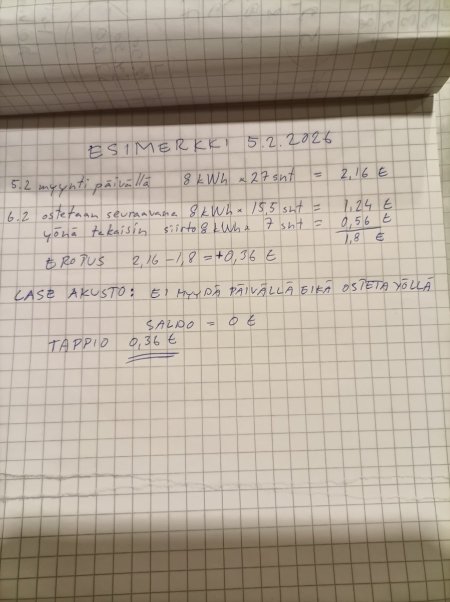 ESIMERKKI 5.2.2026
5.2 myynti päivällä 8 kWh × 27 snt = 2,16 €
6.2 ostetaan seuraavana 8 kWh × 15,5 snt = 1,24 €
yönä takaisin siirto 8 kWh × 7 snt = 0,56 €
1,8 €
EROTUS 2,16 – 1,8 = +0,36 €
CASE AKUSTO: EI MYYDÄ PÄIVÄLLÄ EIKÄ OSTETA YÖLLÄ
SALDO = 0 €
TAPPIO 0,36 €